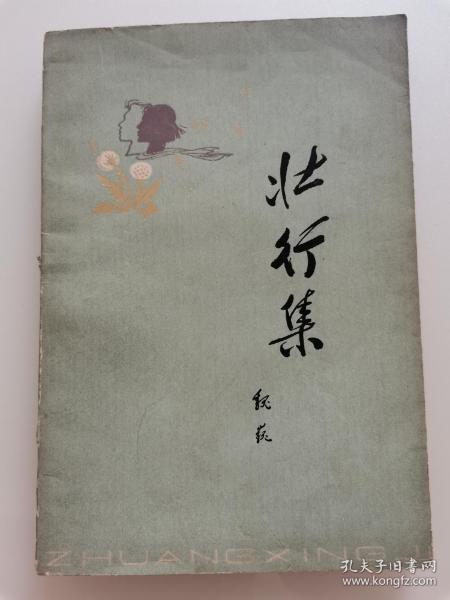 壮行集
魏巍
ZHUANGXING JI
孔夫子旧书网
www.kongfz.com